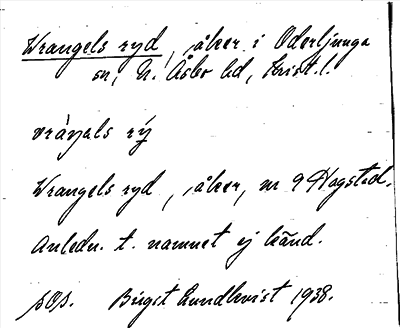 Wrangels ryd, åker i Oderljunga
sn, N. Åsbo hd, Krist. l.
vráŋals rȳ
Wrangels ryd, åker, nr 9 Hagstad.
Anledn. t. namnet ej känd.
Birgit Lundkvist 1938.